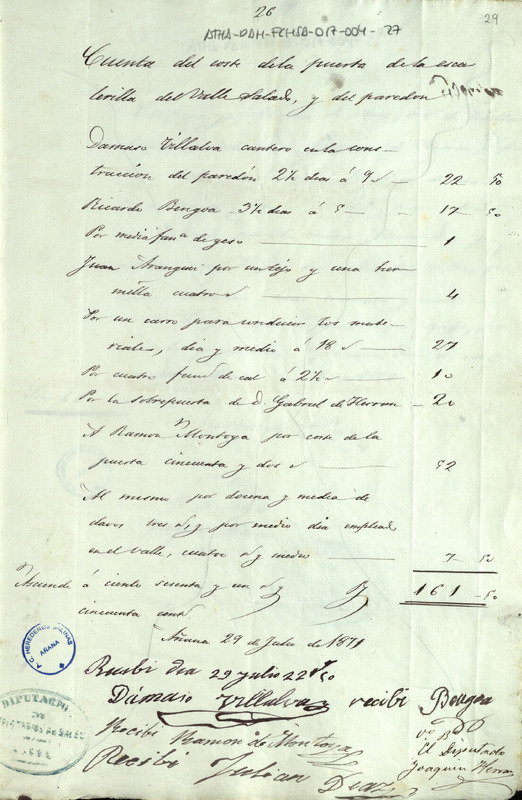 26
29
ATHA-DAH-FCHSA-017-004-27
Cuenta del coste de la puerta de la esca
lerilla del Valle Salado, y del paredon
Damaso Villalva cantero en la cons-
truccion del paredon 2½ dias á 9 — 22 50
Ricardo Bengoa 3½ dias á 5 — 17 50
Por media fanª de yeso — 1
Juan Aranguri por un tejo y una her-
milla cuatro — 4
Por un carro para conducir los mate-
riales, dia y medio á 18 — 27
Por cuatro fans de cal á 2½ — 10
Por la sobrepuerta de D. Gabriel de Herran — 20
A Ramon Montoya por coste de la
puerta cincuenta y dos — 52
Al mismo por docena y media de
clavos tres y por medio dia emplead
en el Valle, cuatro y medio — 7 50
Asciende á ciento sesenta y un y 161 50
cincuenta cents
Añana 29 de Julio de 1871
Recibi dia 29 julio 22 50
Dámaso Villalva recibi Bengoa
Recibi Ramon de Montoya
Vº Bº
El Diputado
Joaquin Herran
Recibi Julian Diaz
A.C. HEREDEROS SALINAS
AÑANA
DIPUTACION